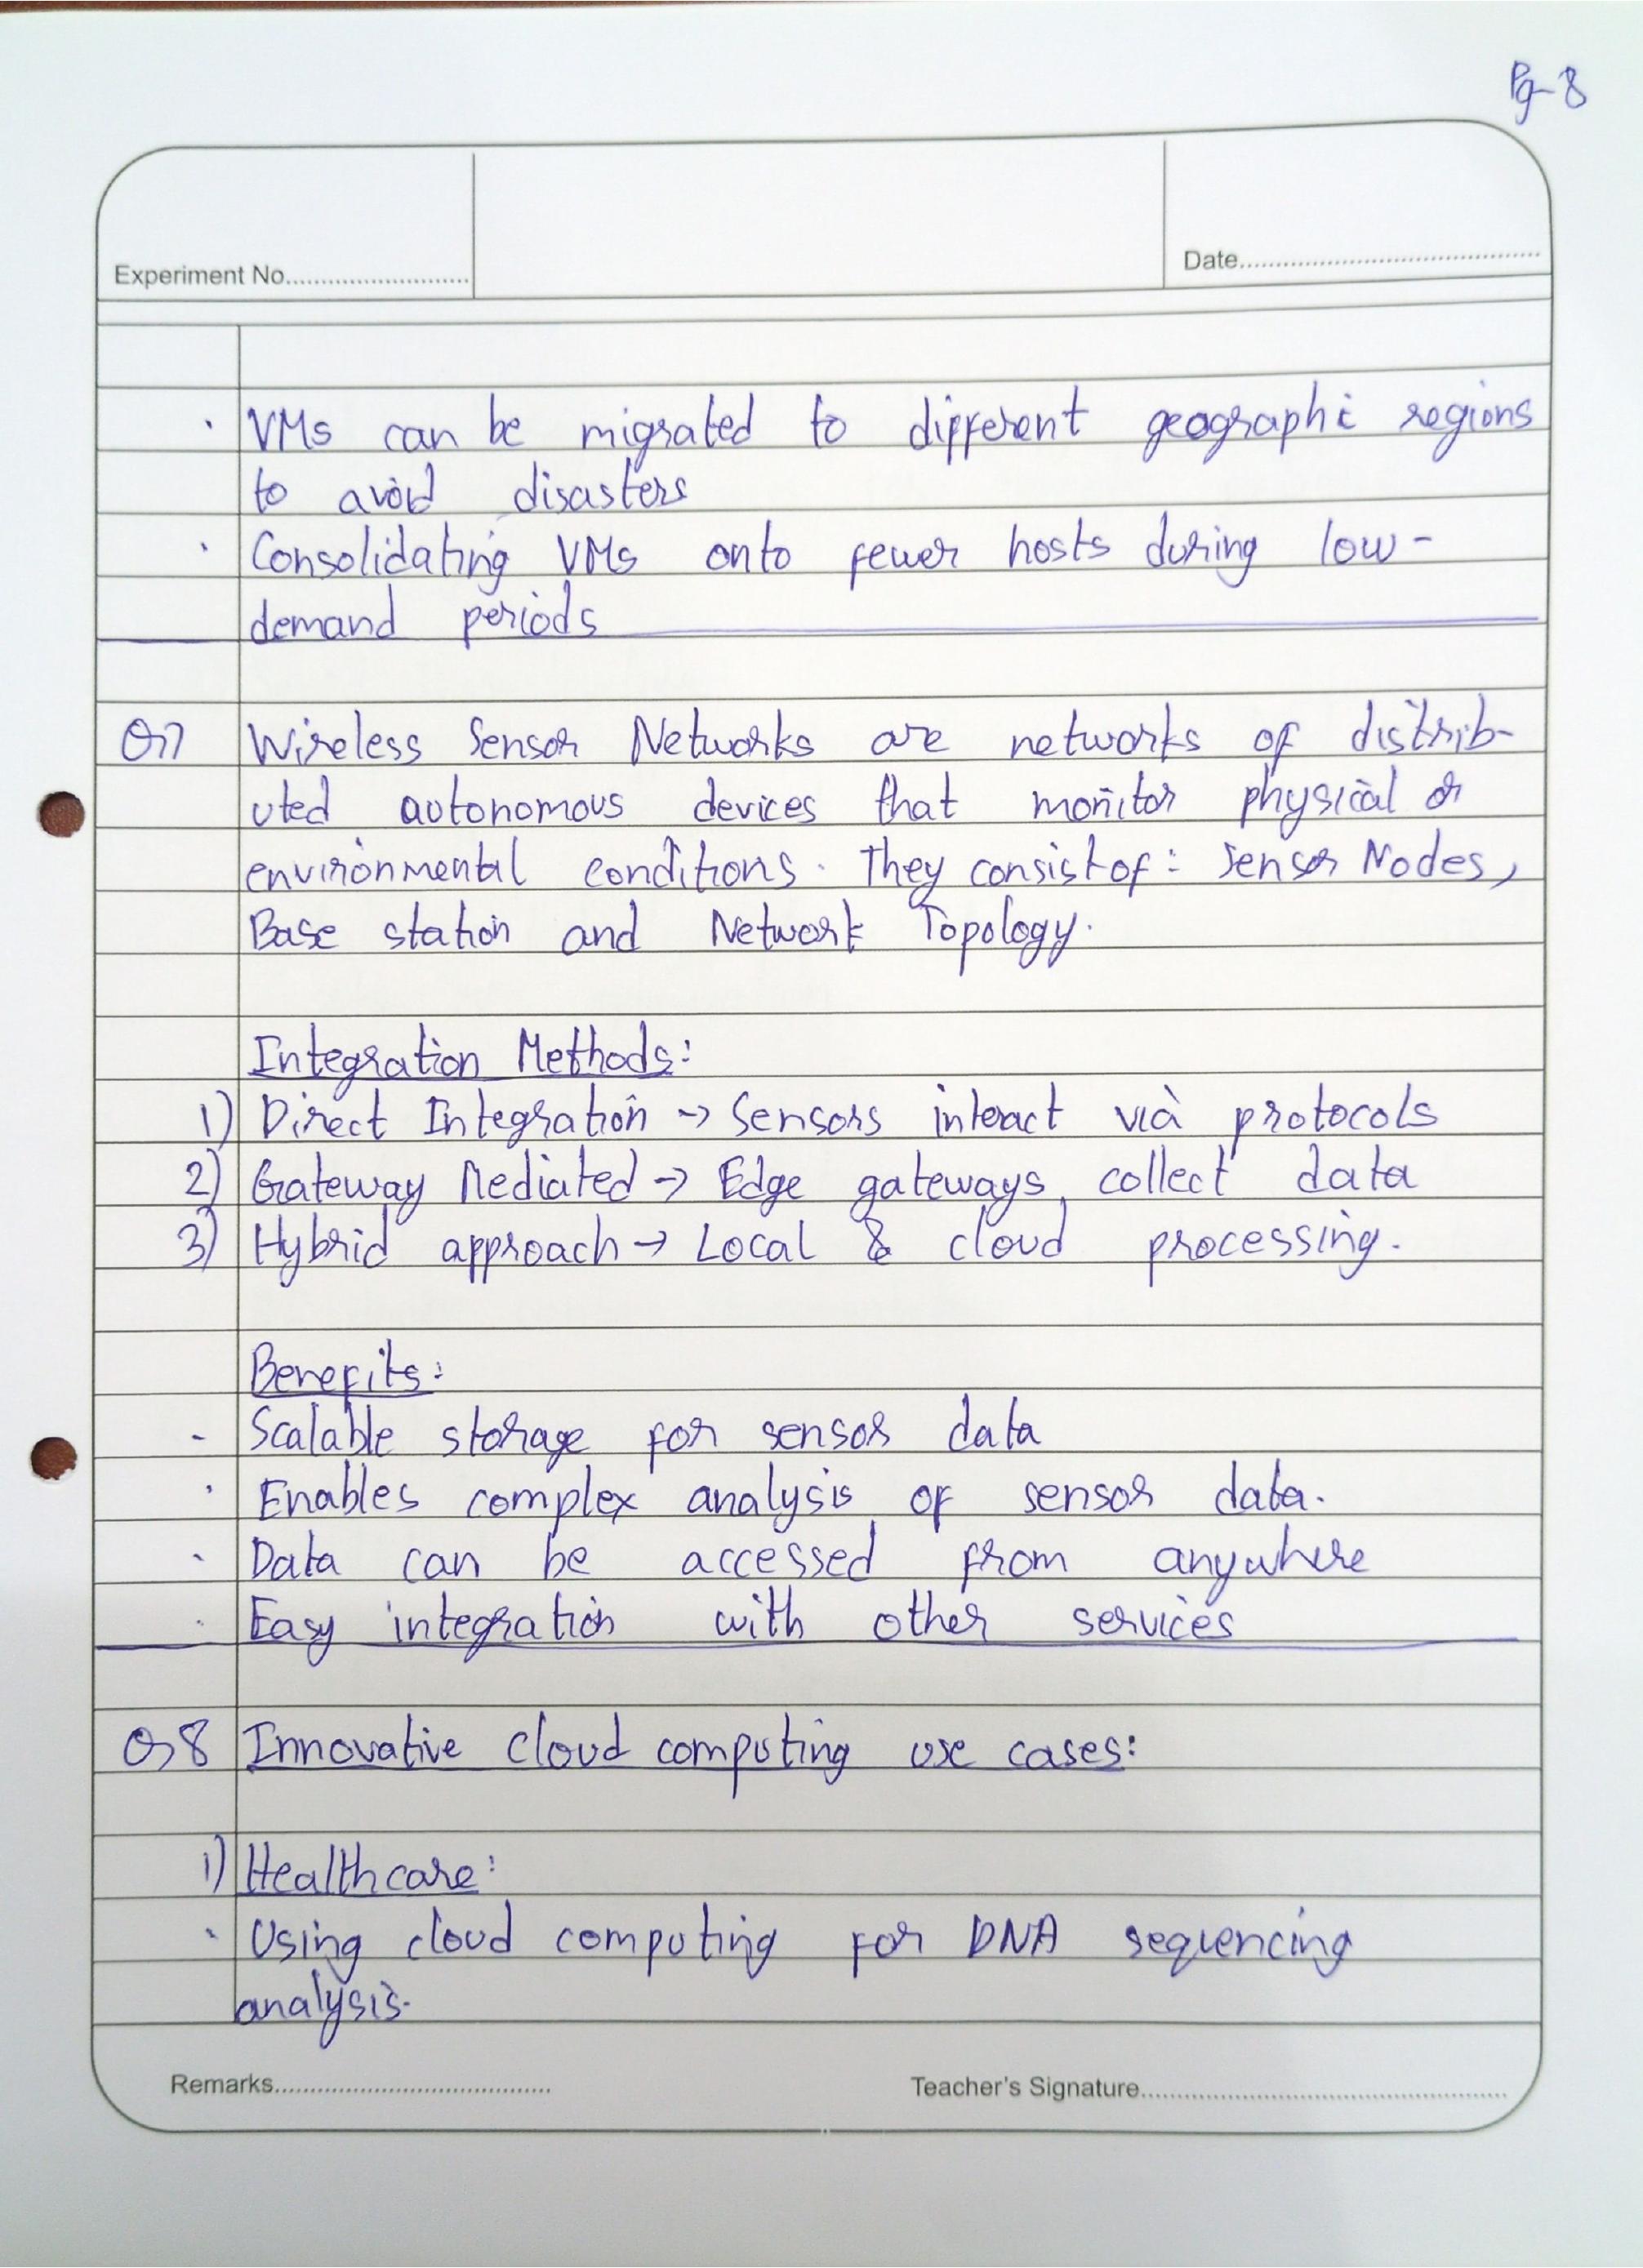 Pg-8
Experiment No.
Date
· VMs can be migrated to different geographic regions
to avoid disasters
· Consolidating VMs onto fewer hosts during low-
demand periods
Q7 Wireless Sensor Networks are networks of distrib-
uted autonomous devices that monitor physical or
environmental conditions. They consist of: Sensor Nodes,
Base station and Network Topology.
Integration Methods:
1) Direct Integration → Sensors interact via protocols
2) Gateway Mediated → Edge gateways collect data
3) Hybrid approach → Local & cloud processing.
Benefits:
- Scalable storage for sensor data
· Enables complex analysis of sensor data.
· Data can be accessed from anywhere
· Easy integration with other services
Q8 Innovative cloud computing use cases:
1) Healthcare:
· Using cloud computing for DNA sequencing
analysis.
Remarks
Teacher's Signature